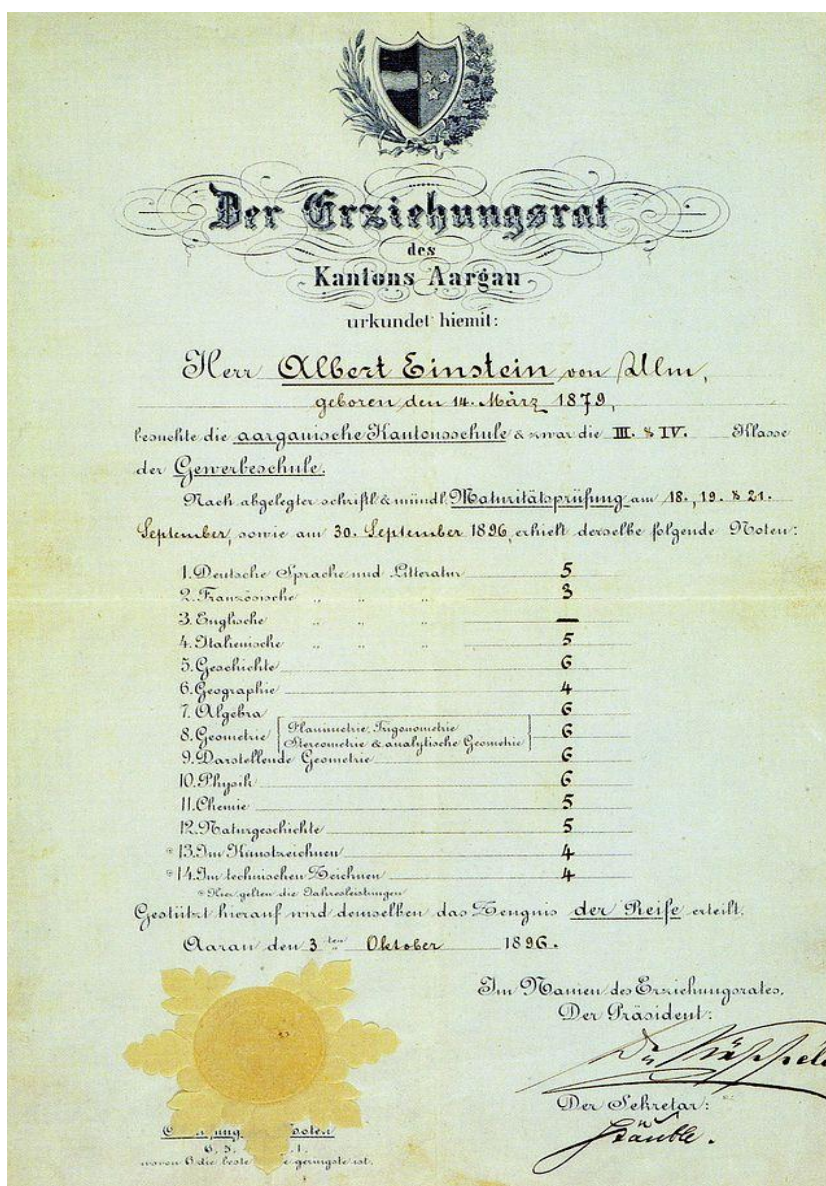 Der Erziehungsrat
des
Kantons Aargau
urkundet hiemit:
Herr Albert Einstein von Ulm,
geboren den 14. März 1879,
besuchte die aargauische Kantonsschule & zwar die III. & IV. Klasse
der Gewerbeschule.
Nach abgelegter schriftl. & mündl. Maturitätsprüfung am 18., 19. & 21.
September, sowie am 30. September 1896, erhielt derselbe folgende Noten:
1. Deutsche Sprache und Litteratur 5
2. Französische „ „ „ 3
3. Englische „ „ „ —
4. Italienische „ „ „ 5
5. Geschichte 6
6. Geographie 4
7. Algebra 6
8. Geometrie [Planimetrie, Trigonometrie
Stereometrie & analytische Geometrie] 6
9. Darstellende Geometrie 6
10. Physik 6
11. Chemie 5
12. Naturgeschichte 5
* 13. Im Kunstzeichnen 4
* 14. Im technischen Zeichnen 4
* Hier gelten die Jahresleistungen
Gestützt hierauf wird demselben das Zeugnis der Reife erteilt.
Aarau den 3ten Oktober 1896.
Im Namen des Erziehungsrates,
Der Präsident:
Der Sekretär:
Stäuble.
6, 5, 1.
wovon 6 die beste geringste ist.